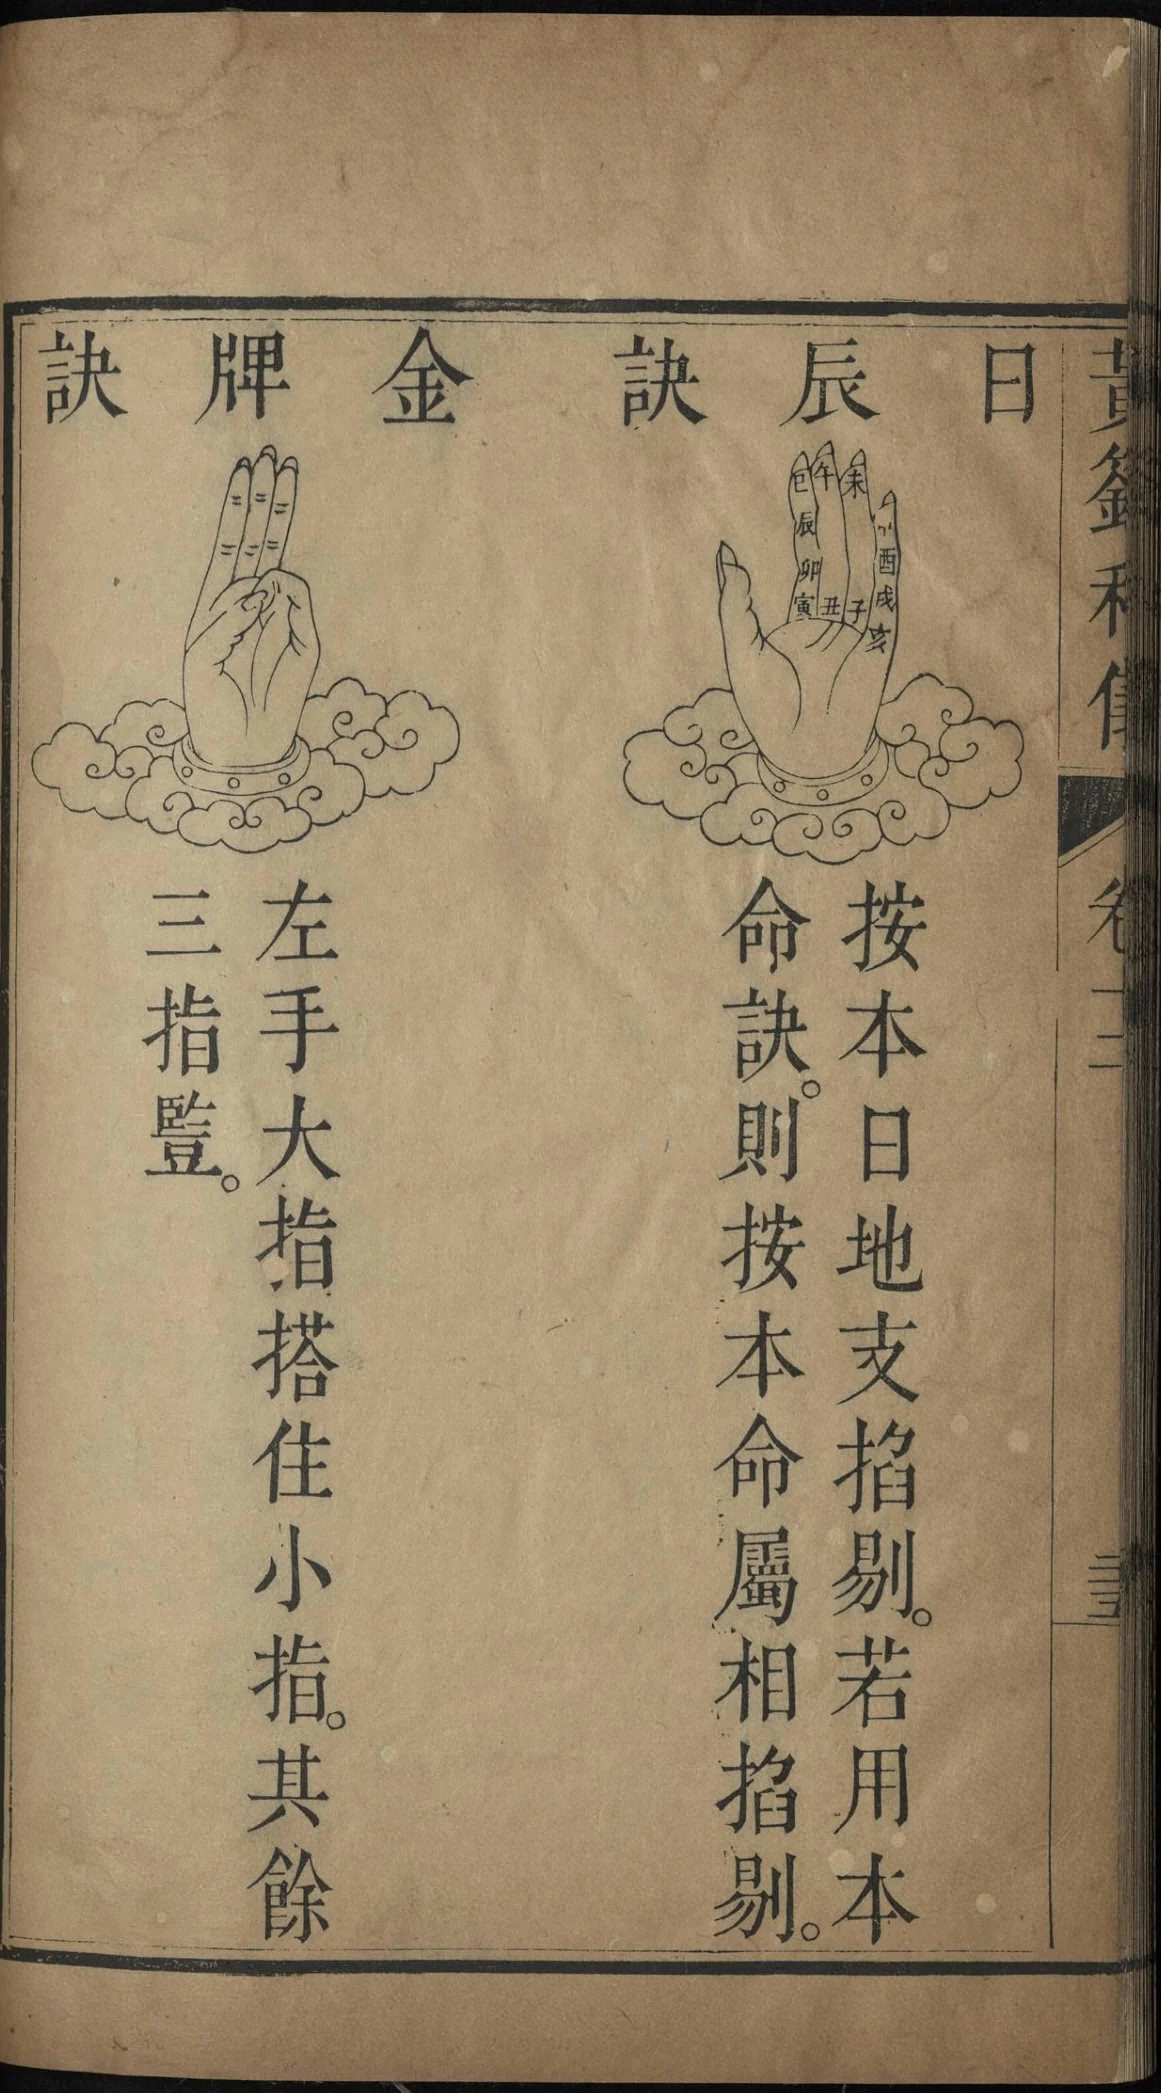 日辰訣
未
午
巳
辰
卯
寅
丑
子
酉
戌
亥
按本日地支掐剔。若用本
命訣。則按本命屬相掐剔。
金牌訣
左手大指搭住小指。其餘
三指豎。